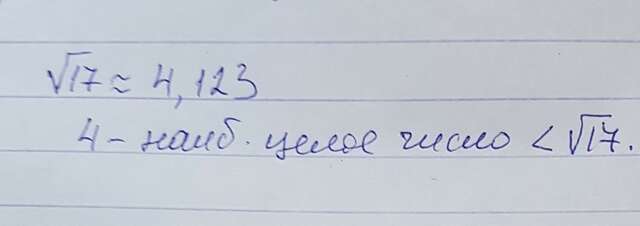 √17 ≈ 4,123
4 – наиб. целое число < √17.